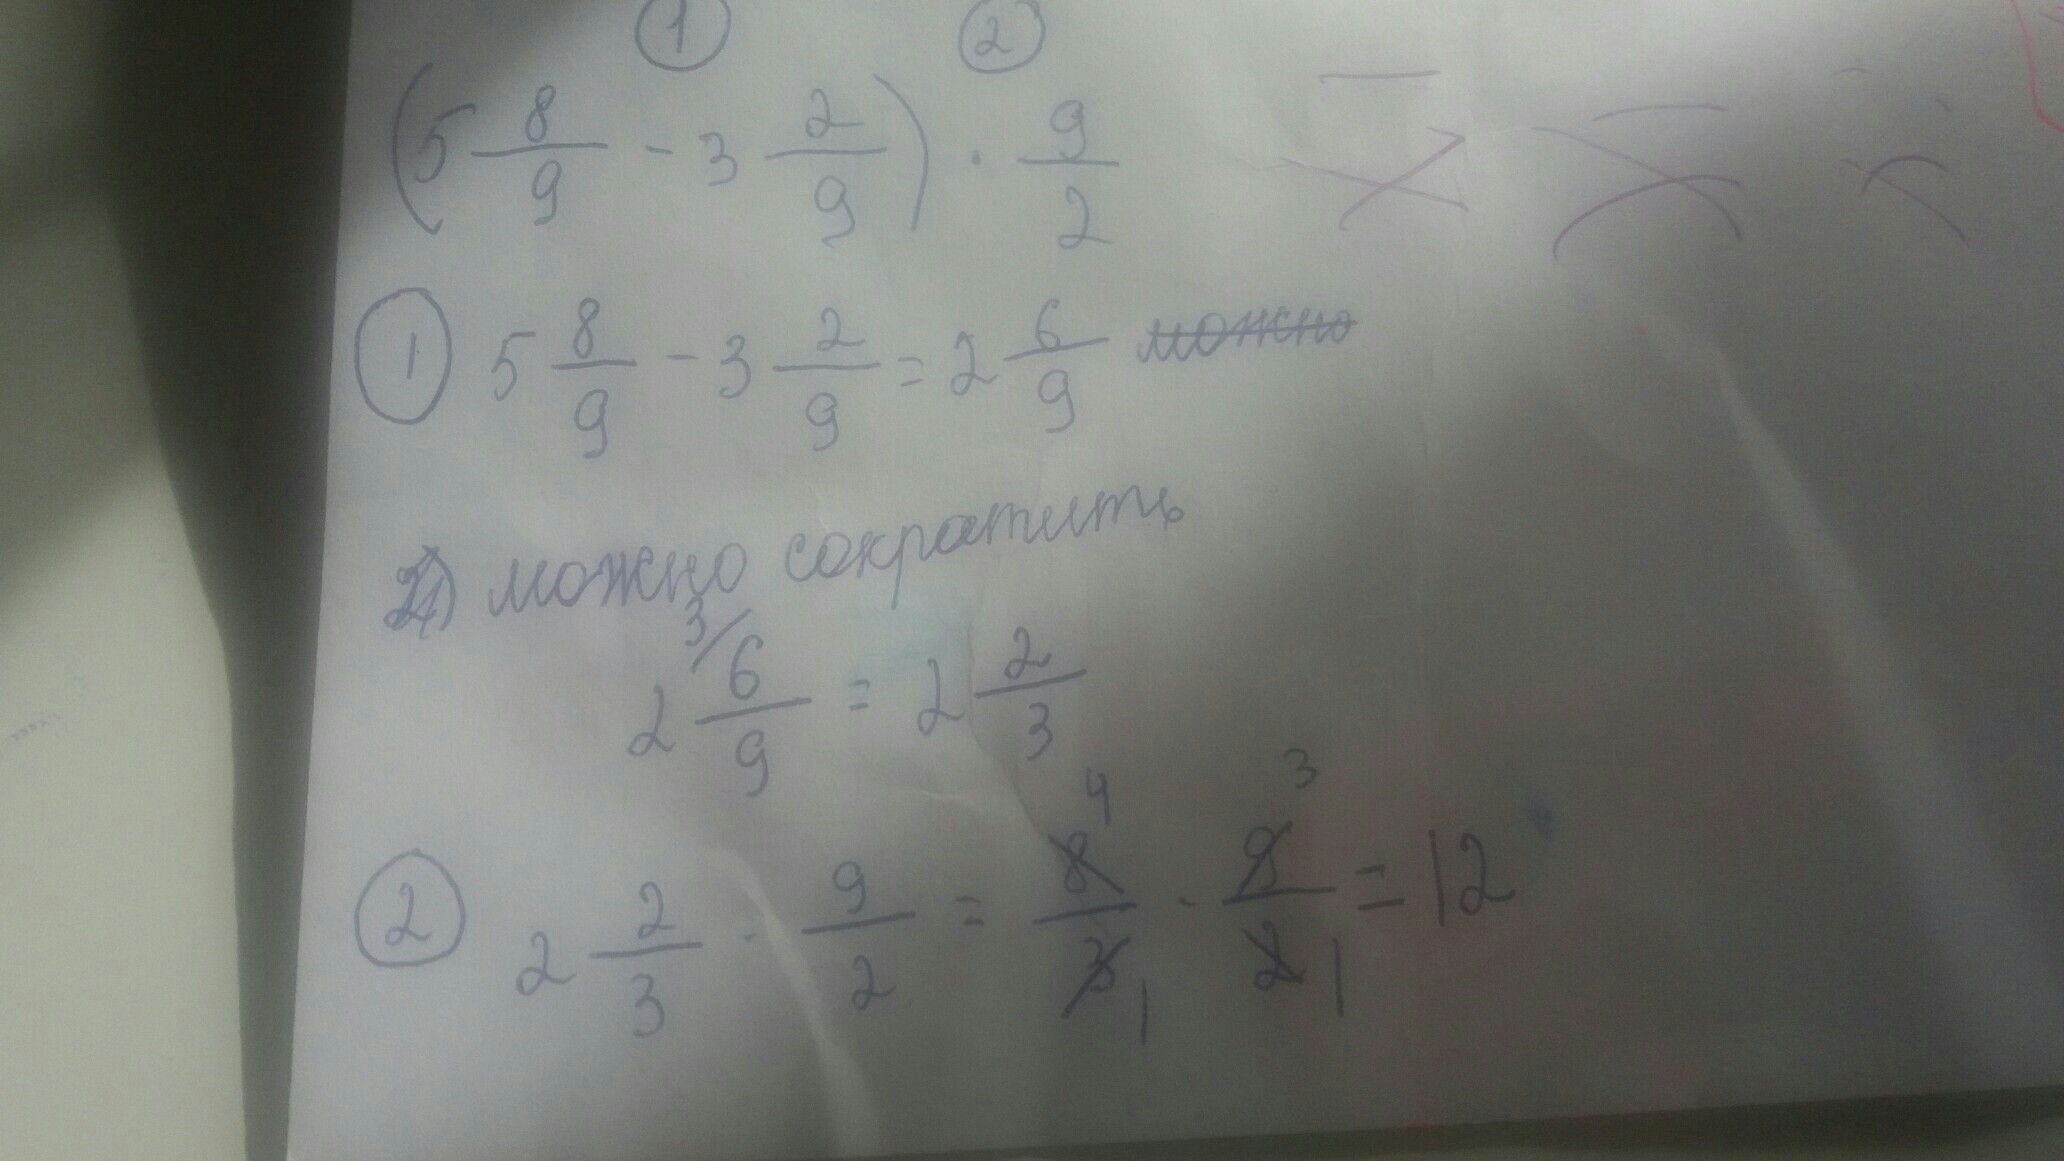 ① ②
(5 8/9 - 3 2/9) · 9/2
① 5 8/9 - 3 2/9 = 2 6/9 можно
можно сократить
2 3/6/9 = 2 2/3
② 2 2/3 · 9/2 = 8 4/3 1 · 9 3/2 1 = 12